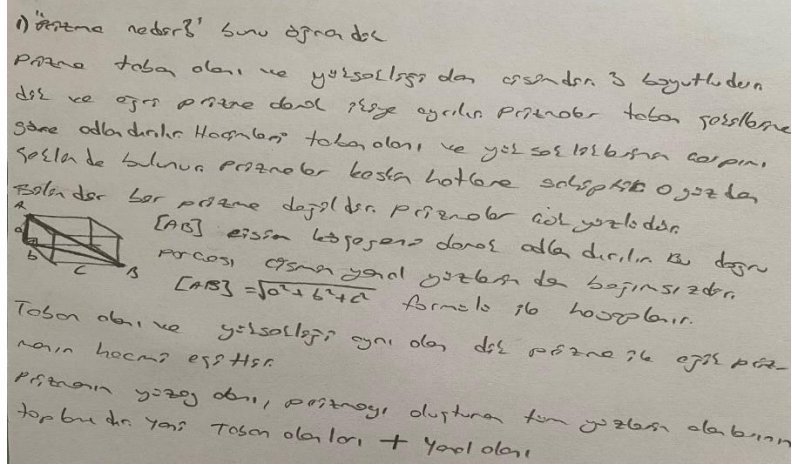 1) "Prizma nedir?" bunu öğrendik
Prizma taban alanı ve yüksekliği olan cisimdir. 3 boyutludur.
dik ve eğri prizma olarak ikiye ayrılır. Prizmalar taban şekillerine
göre adlandırılır. Hacimleri taban alanı ve yüksekliklerinin çarpımı
şeklinde bulunur. Prizmalar keskin hatlara sahiptir o yüzden
silindir bir prizma değildir. Prizmalar çok yüzlüdür.
A
a
b
c
B
[AB] cisim köşegeni olarak adlandırılır. Bu doğru
parçası cismin yanal yüzlerinden bağımsızdır.
[AB] = √a²+b²+c² formülü ile hesaplanır.
Taban alanı ve yüksekliği aynı olan dik prizma ile eğik priz-
manın hacmi eşittir.
Prizmanın yüzey alanı, prizmayı oluşturan tüm yüzlerin alanlarının
toplamıdır. Yani Taban alanları + Yanal alanı